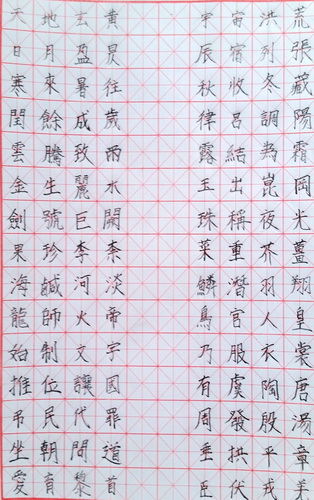 天地玄黃 宇宙洪荒
日月盈昃 辰宿列張
寒來暑往 秋收冬藏
閏餘成歲 律呂調陽
雲騰致雨 露結為霜
金生麗水 玉出崑岡
劍號巨闕 珠稱夜光
果珍李奈 菜重芥薑
海鹹河淡 鱗潛羽翔
龍師火帝 鳥官人皇
始制文字 乃服衣裳
推位讓國 有虞陶唐
吊民代罪 周發殷湯
坐朝問道 垂拱平章
愛育黎首 臣伏戎羌